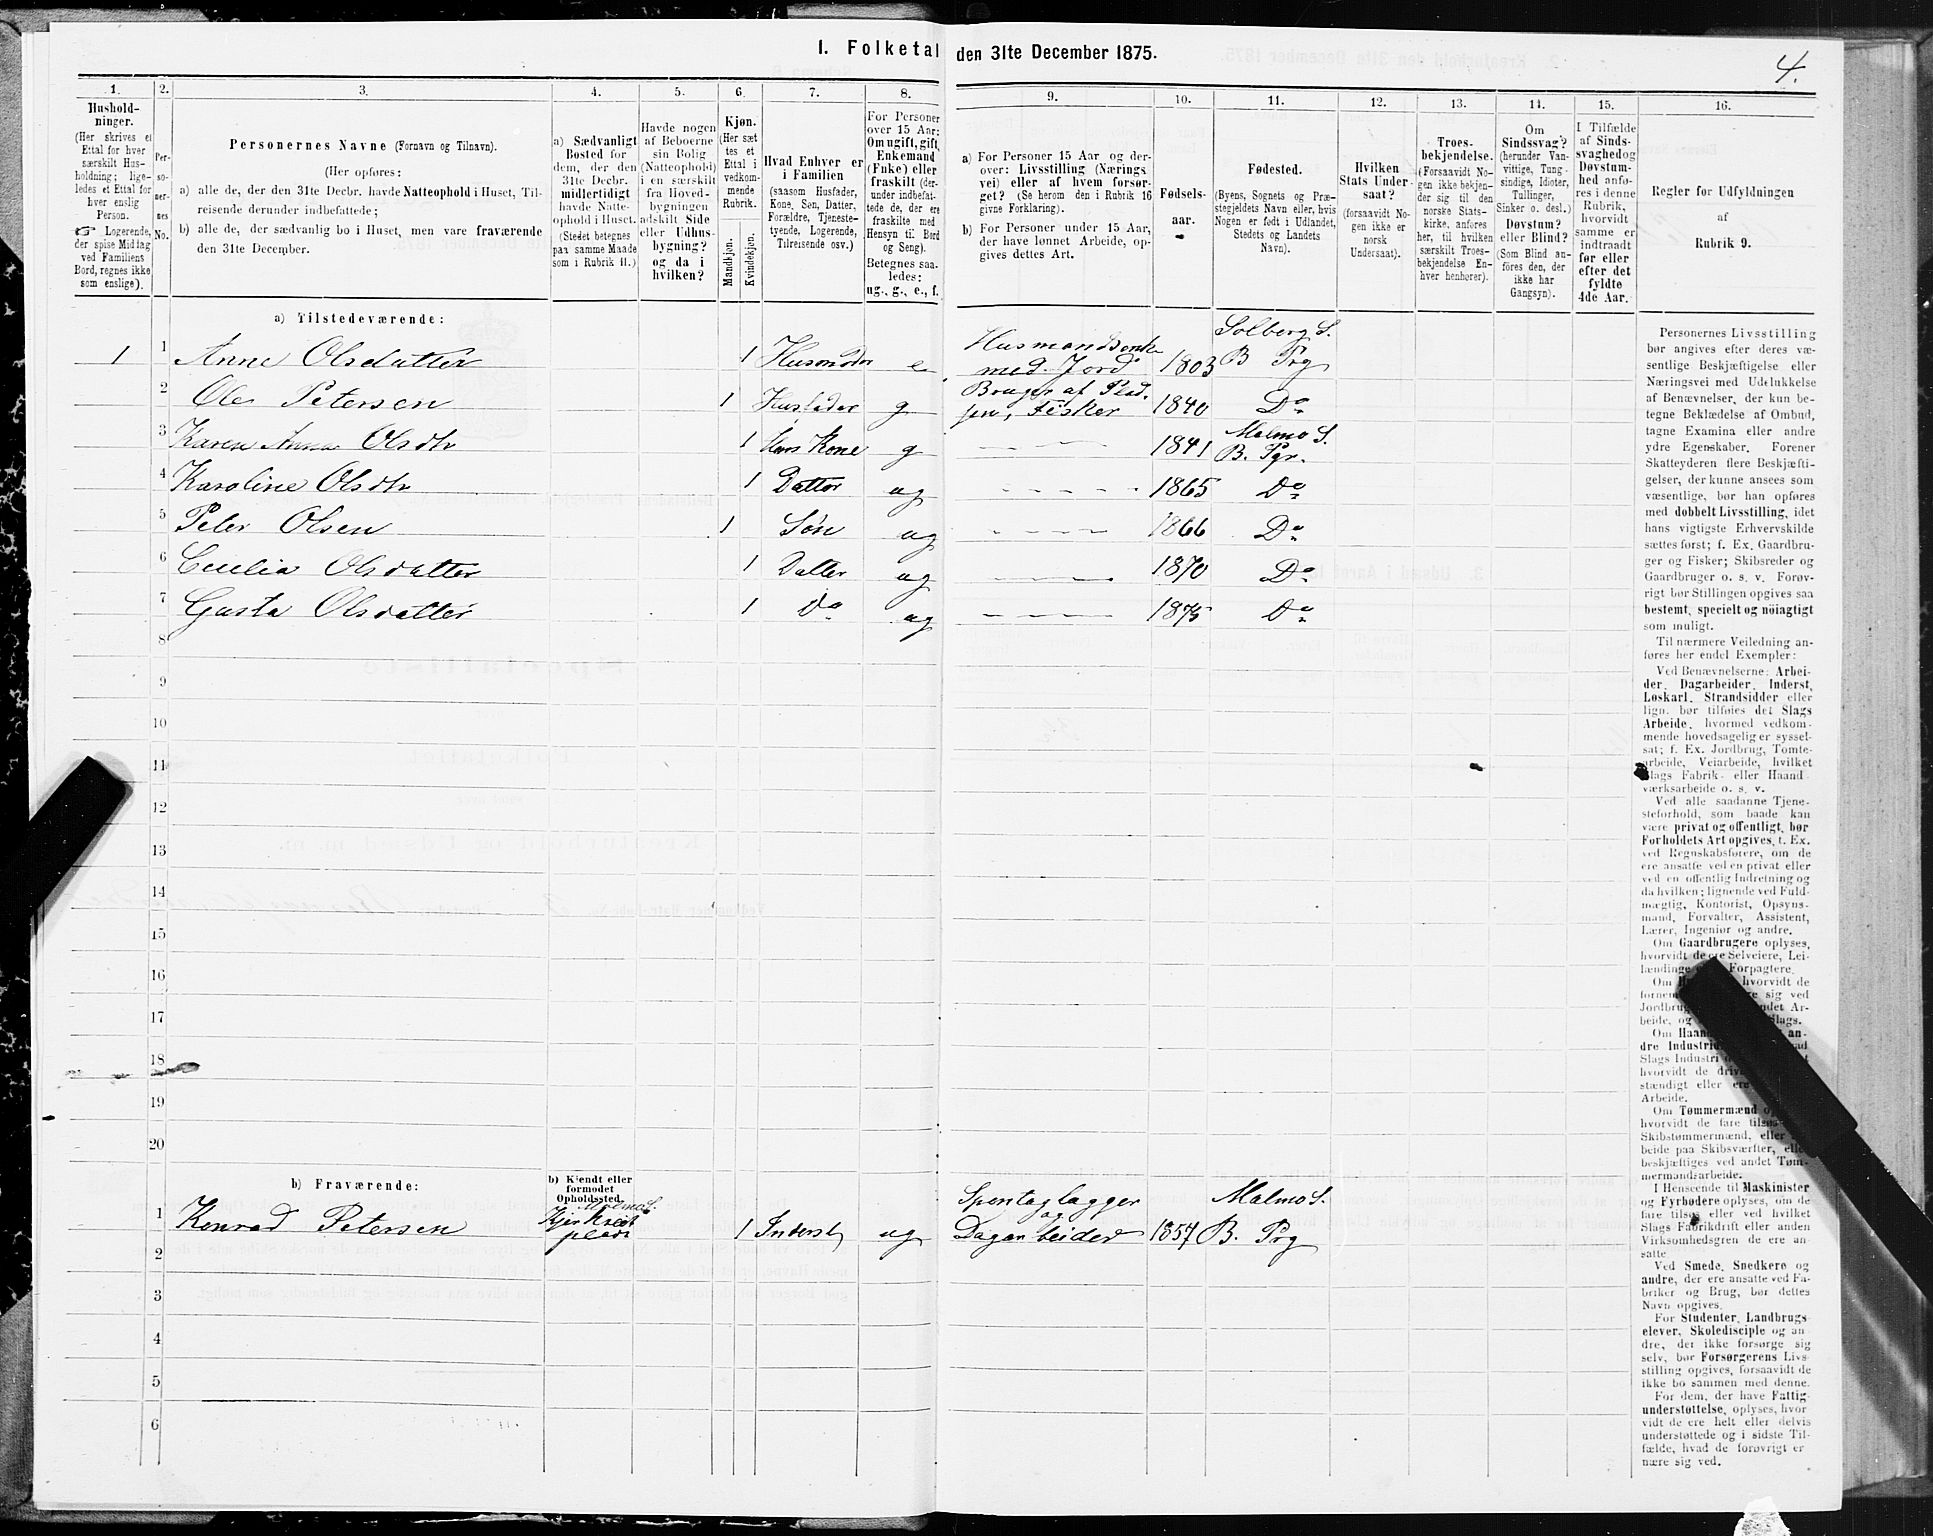 1. Folketal den 31te December 1875.
4.
1.
2.
3.
4.
5.
6.
7.
8.
9.
10.
11.
12.
13.
14.
15.
16.
Hushold-
ninger.
(Her skrives et
Ettal for hver
særskilt Hus-
holdning; lige-
ledes et Ettal for
hver enslig
Person.
☞ Logerende,
der spise Middag
ved Familiens
Bord, regnes ikke
som enslige).
Per-
so-
ner-
nes
No.
Personernes Navne (Fornavn og Tilnavn).
(Her opføres:
a) alle de, der den 31te Decbr. havde Natteophold i Huset, Til-
reisende derunder indbefattede;
b) alle de, der sædvanlig bo i Huset, men vare fraværende
den 31te December.
a) Sædvanligt
Bosted for
dem, der den
31te Decbr.
midlertidigt
havde Natte-
ophold i Huset.
(Stedet betegnes
paa samme Maade
som i Rubrik 11.)
Havde nogen
af Beboerne
sin Bolig
(Natteophold)
i en særskilt
fra Hoved-
bygningen
adskilt Side
eller Udhus-
bygning?
og da i
hvilken?
Kjøn.
(Her sæt-
tes et
Ettal i
vedkom-
mende
Rubrik.
Mandkjøn.
Kvindekjøn.
Hvad Enhver er
i Familien
(saasom Husfader,
Kone, Søn, Datter,
Forældre, Tjeneste-
tyende, Logerende,
Tilreisende osv.)
For Personer
over 15 Aar:
Om ugift, gift,
Enkemand
(Enke) eller
fraskilt (der-
under indbefat-
tede de, der ere
fraskilte med
Hensyn til Bord
og Seng).
Betegnes saa-
ledes:
ug., g., e., f.
a) For Personer 15 Aar og der-
over: Livsstilling (Nærings
vei) eller af hvem forsør-
get? (Se herom den i Rubrik 16
givne Forklaring).
b) For Personer under 15 Aar,
der have lønnet Arbeide, op-
gives dettes Art.
Fødsels-
aar.
Fødested.
(Byens, Sognets og Præ-
stegjeldets Navn eller, hvis
Nogen er født i Udlandet,
Stedets og Landets
Navn).
Hvilken
Stats Under-
saat?
(forsaavidt No-
gen ikke er
norsk
Undersaat).
Troes-
bekjendelse.
(Forsaavidt No-
gen ikke bekjen-
der sig til den
norske Stats-
kirke, anføres
her, til hvilken
særskilt Troes-
bekjendelse En-
hver henhører).
Om
Sindssvag?
(herunder Van-
vittige, Tung-
sindige, Idioter,
Tullinger,
Sinker o. desl.)
Døvstum?
eller Blind?
(Som Blind an-
føres den, der
ikke har
Gangsyn).
I Tilfælde
af Sinds-
svaghed og
Døvstum-
hed anfø-
res i denne
Rubrik,
hvorvidt
samme er
indtraadt
før eller
efter det
fyldte
4de Aar.
Regler for Udfyldningen
af
Rubrik 9.
a) Tilstedeværende:
Solberg S.
Husmandsenke
1 1 Anne Olsdatter 1 e med Jord 1803 B Prg
Bruger af
2 Ole Petersen 1 Husfader g Fisker 1840 Do
Malmo S.
3 Karen Anna Olsdtr 1 Hans Kone g — — — 1841 B. Pgr.
4 Karoline Olsdtr 1 Datter ug — — — 1865 Do
5 Peter Olsen 1 Søn ug — — — 1866 Do
6 Cecilia Olsdatter 1 Datter ug — — — 1870 Do
7 Gusta Olsdatter 1 Do ug — — — 1875 Do
8
9
10
11
12
13
14
15
16
17
18
19
20
b) Fraværende:
b) Kjendt eller
formodet
Opholdssted.
Malmo S. Malmo S.
og
1 Konrad Petersen 1 Inderst ug Dagarbeider 1857 B. Prg
2
3
4
5
6
Personernes Livsstilling
bør angives efter deres væ-
sentlige Beskjæftigelse eller
Næringsvei med Udelukkelse
af Benævnelser, der kun be-
tegne Beklædelse af Ombud,
tagne Examina eller andre
ydre Egenskaber. Forener
Skatteyderen flere Beskjæfti-
gelser, der kunne ansees som
væsentlige, bør han opføres
med dobbelt Livsstilling, idet
hans vigtigste Erhvervskilde
sættes først; f. Ex. Gaardbru-
ger og Fisker; Skibsreder og
Gaardbruger o. s. v. Forøv-
rigt bør Stillingen opgives saa
bestemt, specielt og nöiagtigt
som muligt.
Til nærmere Veiledning an-
føres her endel Exempler:
Ved Benævnelserne: Arbei-
der, Dagarbeider, Inderst,
Løskarl, Strandsidder eller
lign. bør tilføies det Slags
Arbeide, hvormed vedkom-
mende hovedsagelig er syssel-
sat; f. Ex. Jordbrug, Tomte-
arbeide, Veiarbeide, hvilket
Slags Fabrik- eller Haand-
værksarbeide o. s. v.
Ved alle saadanne Tjene-
steforhold, som baade kan
være privat og offentligt, bør
Forholdets Art opgives, t. Ex.
ved Regnskabsførere, om de
ere ansatte ved en privat eller
ved en offentlig Indretning og
da hvilken; lignende ved Fuld-
mægtig, Kontorist, Opsyns-
mand, Forvalter, Assistent,
Lærer, Ingeniør og andre.
Om Gaardbrugere oplyses,
hvorvidt de ere Selveiere, Lei-
lændinge Forpagtere.
Om hvorvidt de
sig ved
Jordbrug Ar-
beide, og Slags.
Om an-
dre Industri
Slags Industri
hvorvidt de
stændigt eller
Arbeide.
Om Tømmermænd
hvorvidt de fare
Skibstømmermænd, eller
beide paa Skibsværfter, eller
beskjæftiges ved andet Tøm-
mermandsarbeide.
I Henseende til Maskinister
og Fyrbødere oplyses, om de
fare tilsøs eller ved hvilket
Slags Fabrikdrift eller anden
Virksomhedsgren de ere an-
satte.
Ved Smede, Snedkere og
andre, der ere ansatte ved Fa-
briker og Brug, bør dettes
Navn opgives.
For Studenter, Landbrugs-
elever, Skoledisciple og an-
dre, der ikke forsørge sig
selv, bør Forsørgerens Livs-
stilling opgives, forsaavidt de
ikke bo sammen med denne.
For dem, der have Fattig-
understøttelse, oplyses, hvor-
vidt de ere helt eller delvis
understøttede og i sidste Til-
fælde, hvad de forøvrigt er-
nære sig ved.